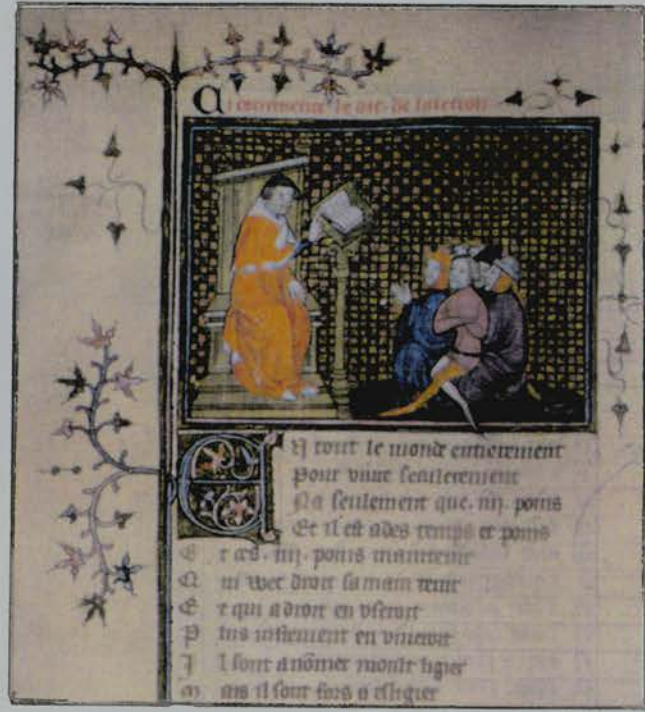 Ci commence le dit de
En tout le monde entierement
Pour viure seulerement
Na seulement que .iiij. poins
Et il est ades temps et poins
E t ces .iiij. poins maintenir
Q ui wet droit sa main tenir
E t qui a droit en vseroit
P lus iustement en viueroit
I l sont a nõmer moult ligier
M ais il sont fors a esligier